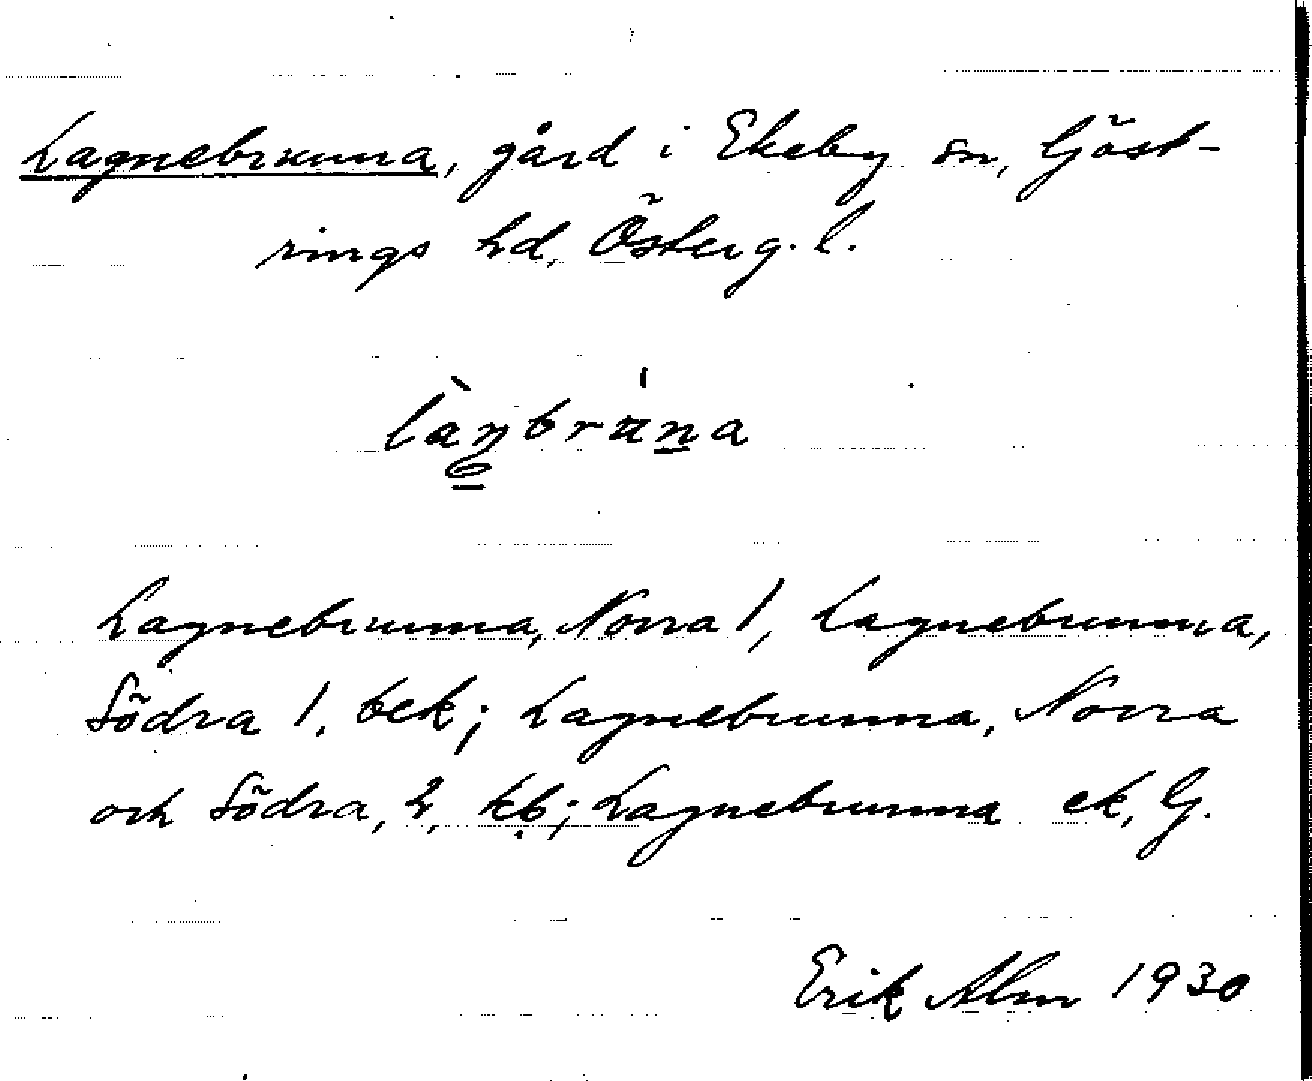 Lagnebrunna, gård i Ekeby sn, Göst-
rings hd, Österg. l.
Lagnebrunna, Norra 1, Lagnebrunna,
Södra 1, bek; Lagnebrunna, Norra
och Södra, 2, kb; Lagnebrunna ek, G.
Erik Alm 1930